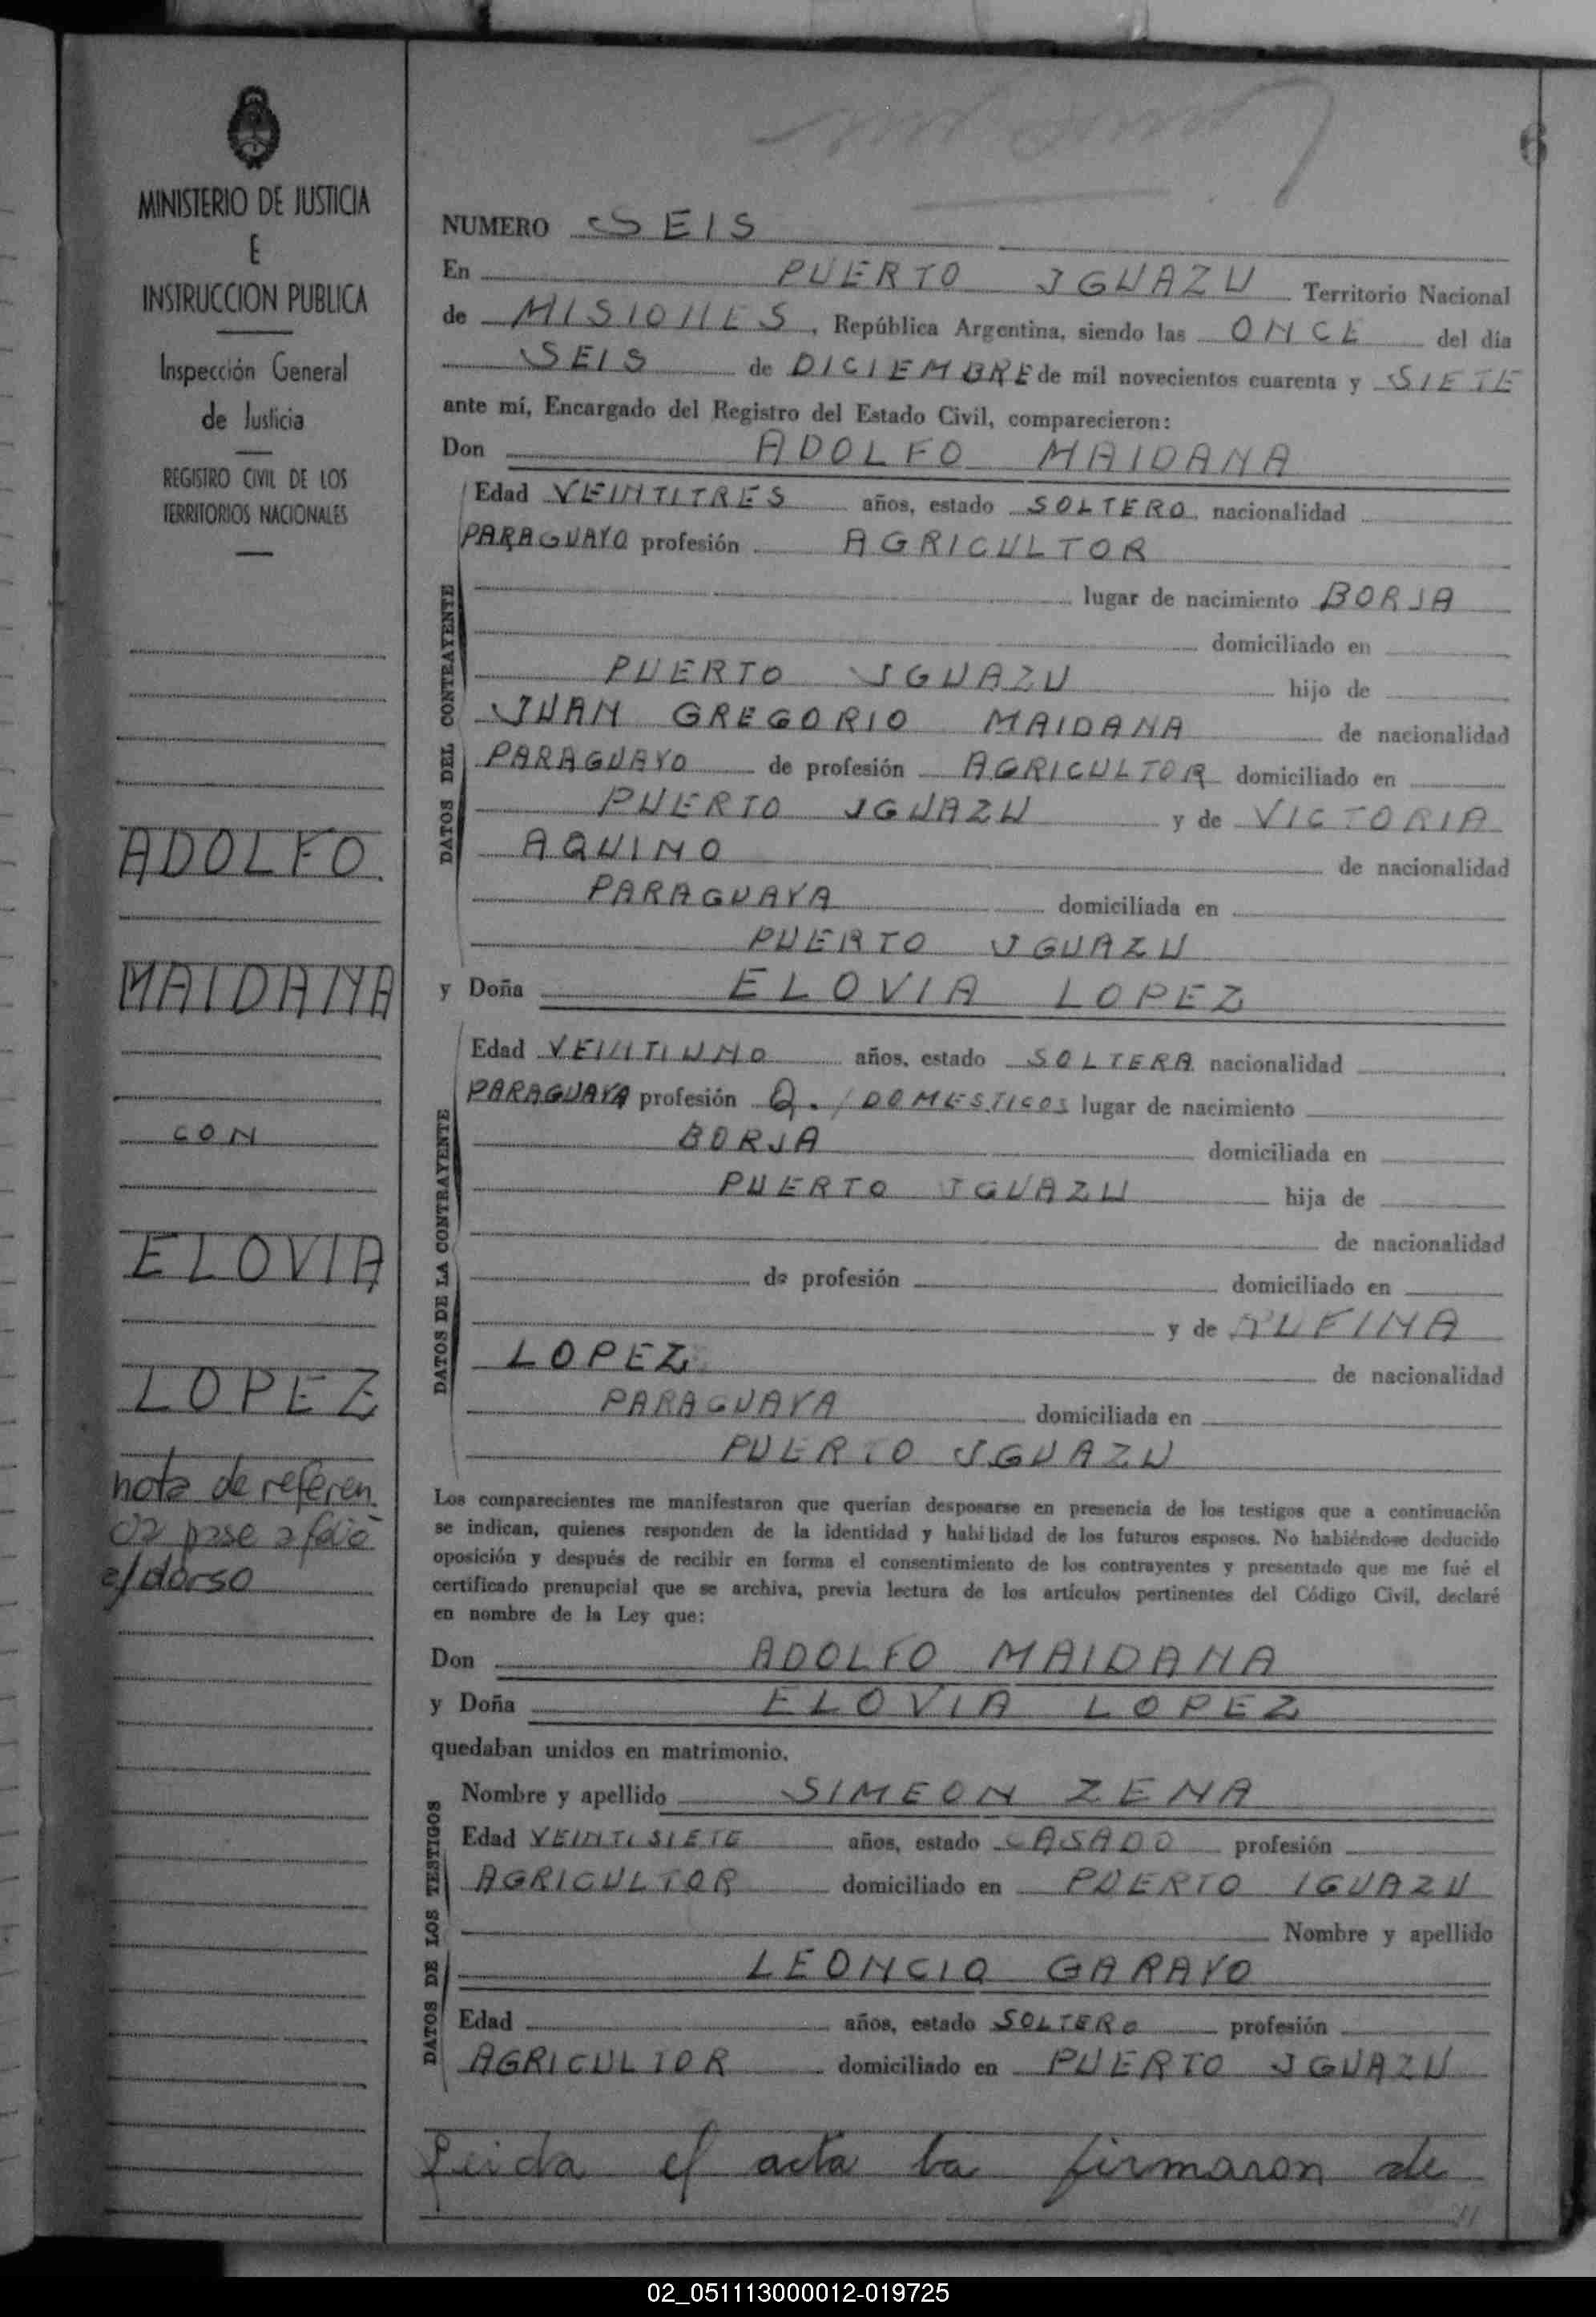 6
MINISTERIO DE JUSTICIA
E
INSTRUCCION PUBLICA
Inspección General
de Justicia
REGISTRO CIVIL DE LOS
TERRITORIOS NACIONALES
ADOLFO
MAIDANA
CON
ELOVIA
LOPEZ
nota de referen
cia pase a folio
e/dorso
NUMERO SEIS
En PUERTO IGUAZU Territorio Nacional
de MISIONES, República Argentina, siendo las ONCE del día
SEIS de DICIEMBRE de mil novecientos cuarenta y SIETE
ante mí, Encargado del Registro del Estado Civil, comparecieron:
Don ADOLFO MAIDANA
DATOS DEL CONTRAYENTE
Edad VEINTITRES años, estado SOLTERO nacionalidad
PARAGUAYO profesión AGRICULTOR
lugar de nacimiento BORJA
domiciliado en
PUERTO IGUAZU hijo de
JUAN GREGORIO MAIDANA de nacionalidad
PARAGUAYO de profesión AGRICULTOR domiciliado en
PUERTO IGUAZU y de VICTORIA
AQUINO de nacionalidad
PARAGUAYA domiciliada en
PUERTO IGUAZU
y Doña ELOVIA LOPEZ
DATOS DE LA CONTRAYENTE
Edad VEINTIUNO años, estado SOLTERA nacionalidad
PARAGUAYA profesión Q./DOMESTICOS lugar de nacimiento
BORJA domiciliada en
PUERTO IGUAZU hija de
de nacionalidad
de profesión domiciliado en
y de RUFINA
LOPEZ de nacionalidad
PARAGUAYA domiciliada en
PUERTO IGUAZU
Los comparecientes me manifestaron que querían desposarse en presencia de los testigos que a continuación
se indican, quienes responden de la identidad y habilidad de los futuros esposos. No habiéndose deducido
oposición y después de recibir en forma el consentimiento de los contrayentes y presentado que me fué el
certificado prenupcial que se archiva, previa lectura de los artículos pertinentes del Código Civil, declaré
en nombre de la Ley que:
Don ADOLFO MAIDANA
y Doña ELOVIA LOPEZ
quedaban unidos en matrimonio.
DATOS DE LOS TESTIGOS
Nombre y apellido SIMEON ZENA
Edad VEINTISIETE años, estado CASADO profesión
AGRICULTOR domiciliado en PUERTO IGUAZU
Nombre y apellido
LEONCIO GARAYO
Edad años, estado SOLTERO profesión
AGRICULTOR domiciliado en PUERTO IGUAZU
Leida el acta la firmaron de
02_051113000012-019725